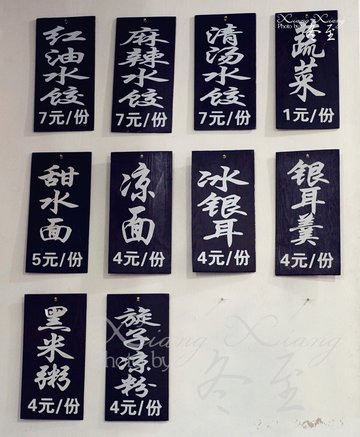 红油水饺
7元/份
麻辣水饺
7元/份
清汤水饺
7元/份
蔬菜
1元/份
甜水面
5元/份
凉面
4元/份
冰银耳
4元/份
银耳羹
4元/份
黑米粥
4元/份
旋子凉粉
4元/份
Xiang Xiang
Photo by
冬至
Xiang Xiang
Photo by
冬至